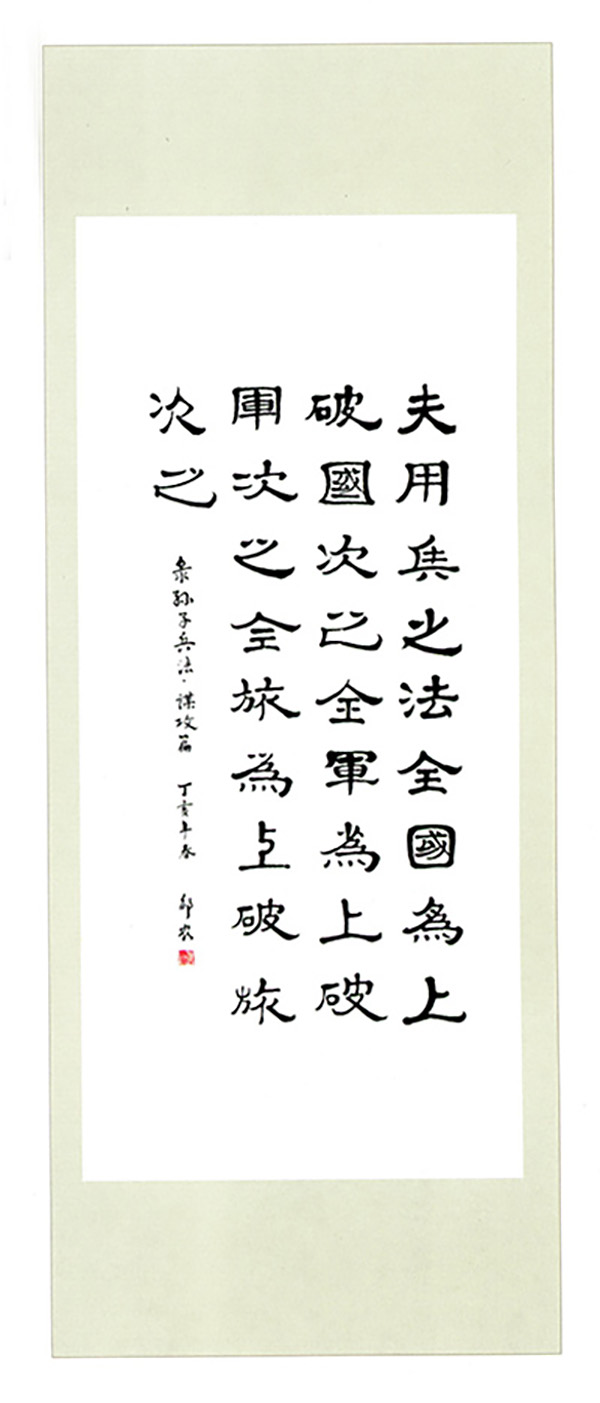 夫用兵之法全國為上
破國次之全軍為上破
軍次之全旅為上破旅
次之
录孙子兵法·謀攻篇 丁亥年春 邹农